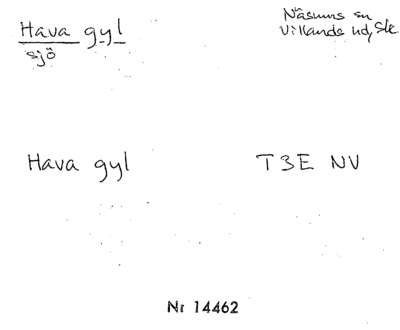 Hava gyl
sjö
Näsums sn
Villands hd, Sk
Hava gyl
T3E NV
Nr 14462